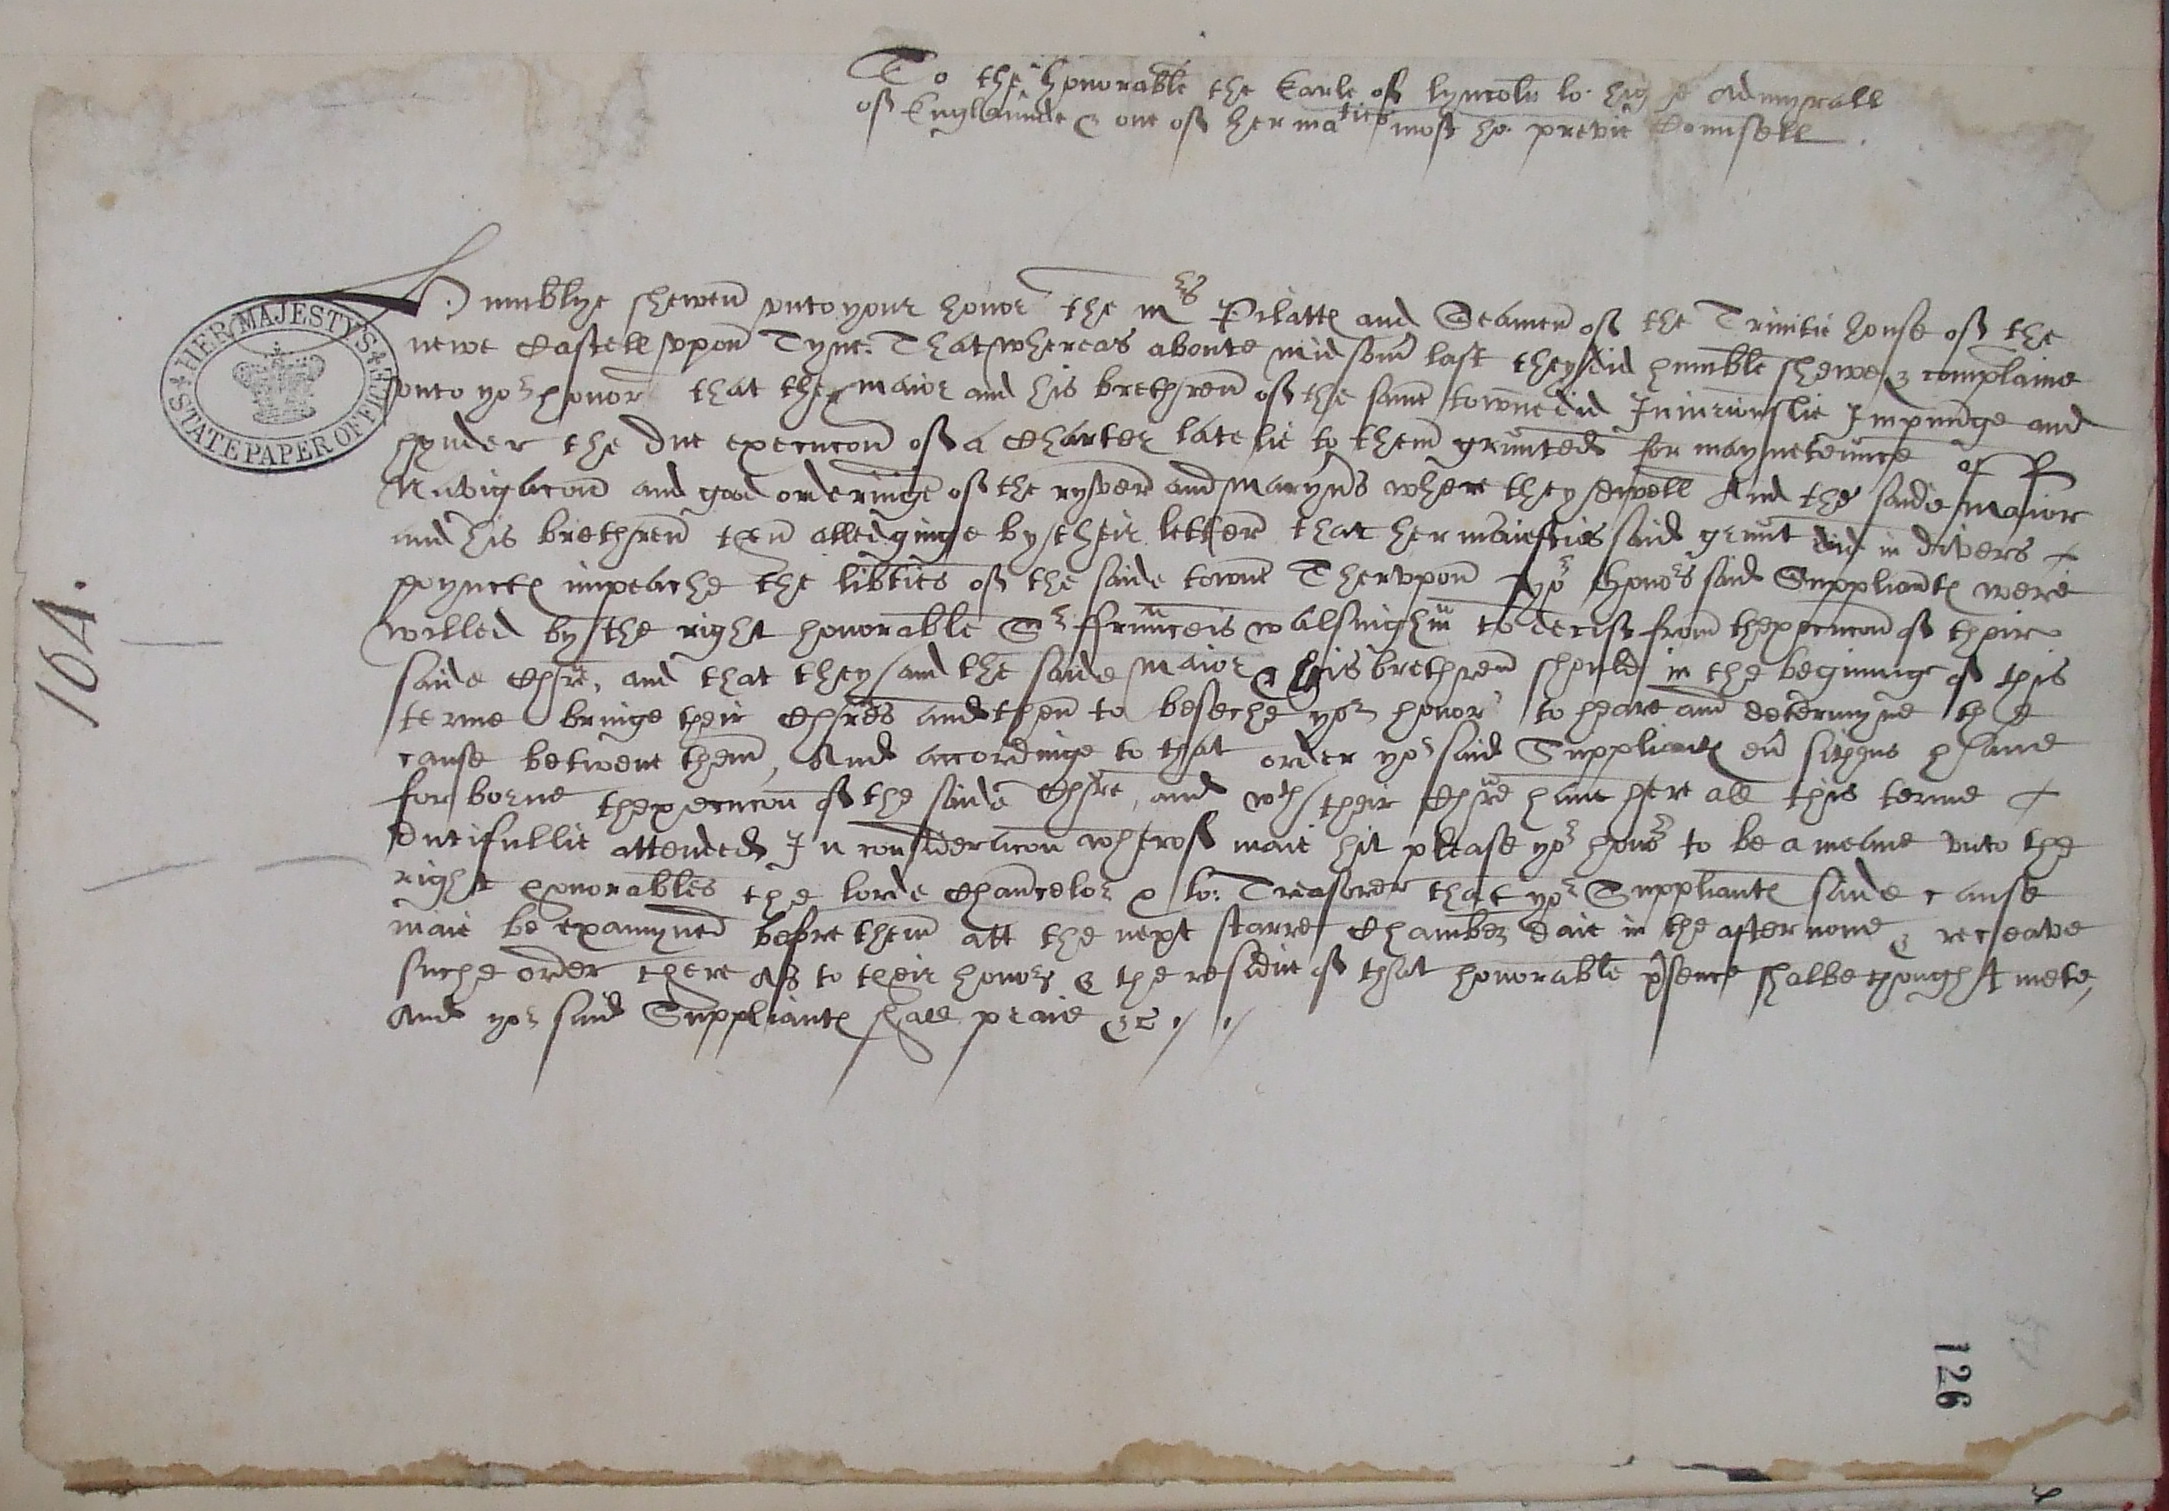 To the honorable the Earle of Lyncoln lo: highe Admyrall
of Englaunde & one of her maties most ho. previe Counsell.
Humblye shewen vnto your honor the mrs Pilattes and Seamen of the Trinitie house of the
newe Castell vpon Tyne. That whereas aboute midsomer last they did humble shewe & complaine
vnto yor honor that the maior and his brethren of the same towne did Iniuriouslie Impunge and
hynder the due execucon of a Charter latelie to them graunted for mayntenaunce of
Navigacon and good orderinge of the ryver and maryners where they dwell And the saide maior
and his brethren then alledginge by their letter that her maiesties said graunt did in divers
poynctes impeache the libties of the saide towne Thervpon yor honors said Suppliantes were
willed by the right honorable Sr Frauncis Walsingham to decist from thexecucon of their
saide Chre, and that they and the saide maior & his brethren should in the beginninge of this
terme bringe their Chres and then to beseche yor honor to heare and determyne the
cause betwene them, And accordinge to that order yor said Suppliantes eu sithens have
forborne thexecucon of the saide Chre, and wth their Chre haue here all this terme
dutifullie attended In consideracon wherof maie hit please yor honor to be a meane vnto the
right honorables the lorde Chancelor & lo: Treasorer that yor Suppliantes saide cause
maie be examyned before them att the next starre Chamber daie in the afternone & receave
suche order there As to their honors & the residue of that honorable psence shalbe thought mete,
And yor said Suppliantes shall praie &c
HER MAJESTY'S
STATE PAPER OFFICE
164.
126